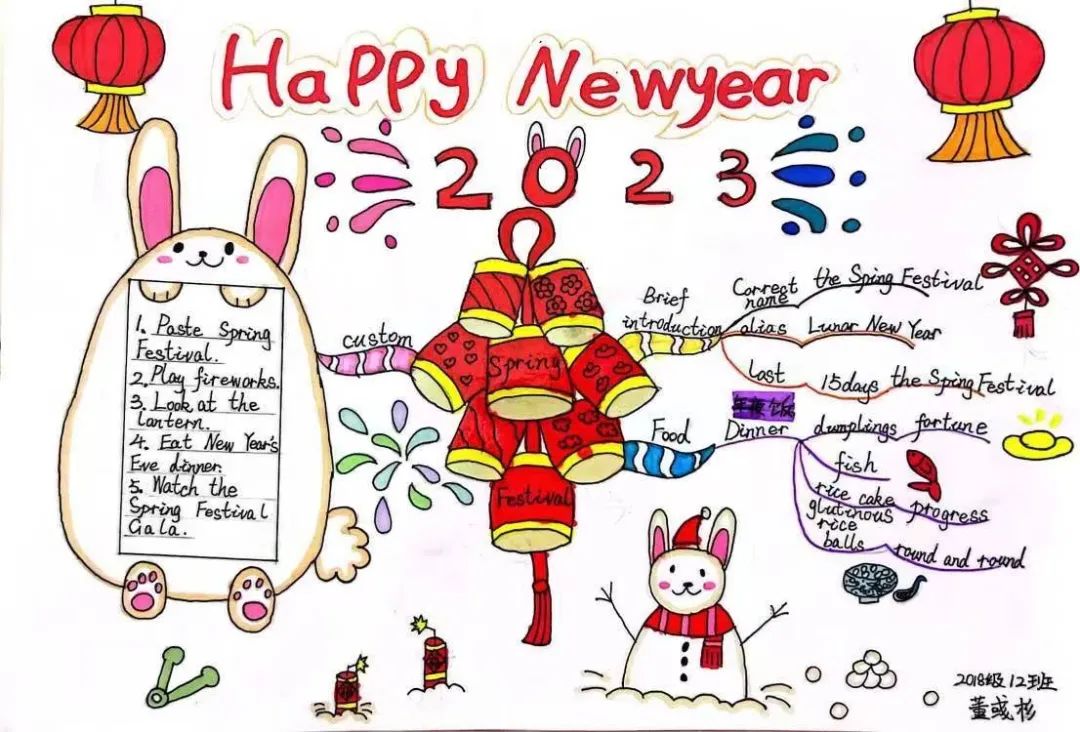 Happy Newyear
2023
1. Paste Spring
Festival.
2. Play fireworks.
3. Look at the
lantern.
4. Eat New Year's
Eve dinner.
5. Watch the
Spring Festival
Gala.
custom
Spring
Festival
Brief
introduction
Correct
name
the Sping Festival
alias
Lunar New Year
last
15days
the Sping Festival
Food
年夜饭
Dinner
dumplings
fortune
fish
rice cake
progress
glutinous
rice
balls
round and round
2018级12班